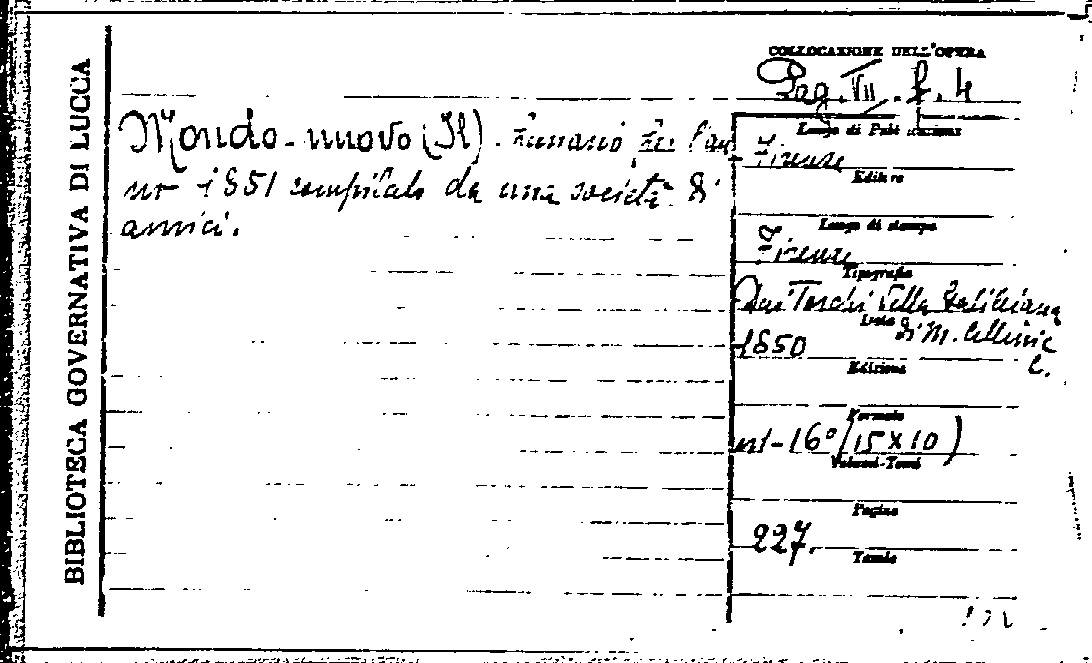 BIBLIOTECA GOVERNATIVA DI LUCCA
COLLOCAZIONE DELL'OPERA
Pag. VII. f. 4
Mondo-nuovo (Il). Lunario per l'an-
no 1851 compilato da una società di
amici.
Luogo di Pubblicazione
Firenze
Editore
Luogo di stampa
Firenze
Tipografia
Dai Torchi della Galileiana
Data
di M. Cellini e
C.
1850
Edizione
Formato
in-16° (15 x 10)
Volumi-Tomi
Pagine
227.
Tavole